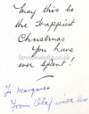 May this be
the Happiest
Christmas
You have
ever spent!
To Margaret
From Olaf with love